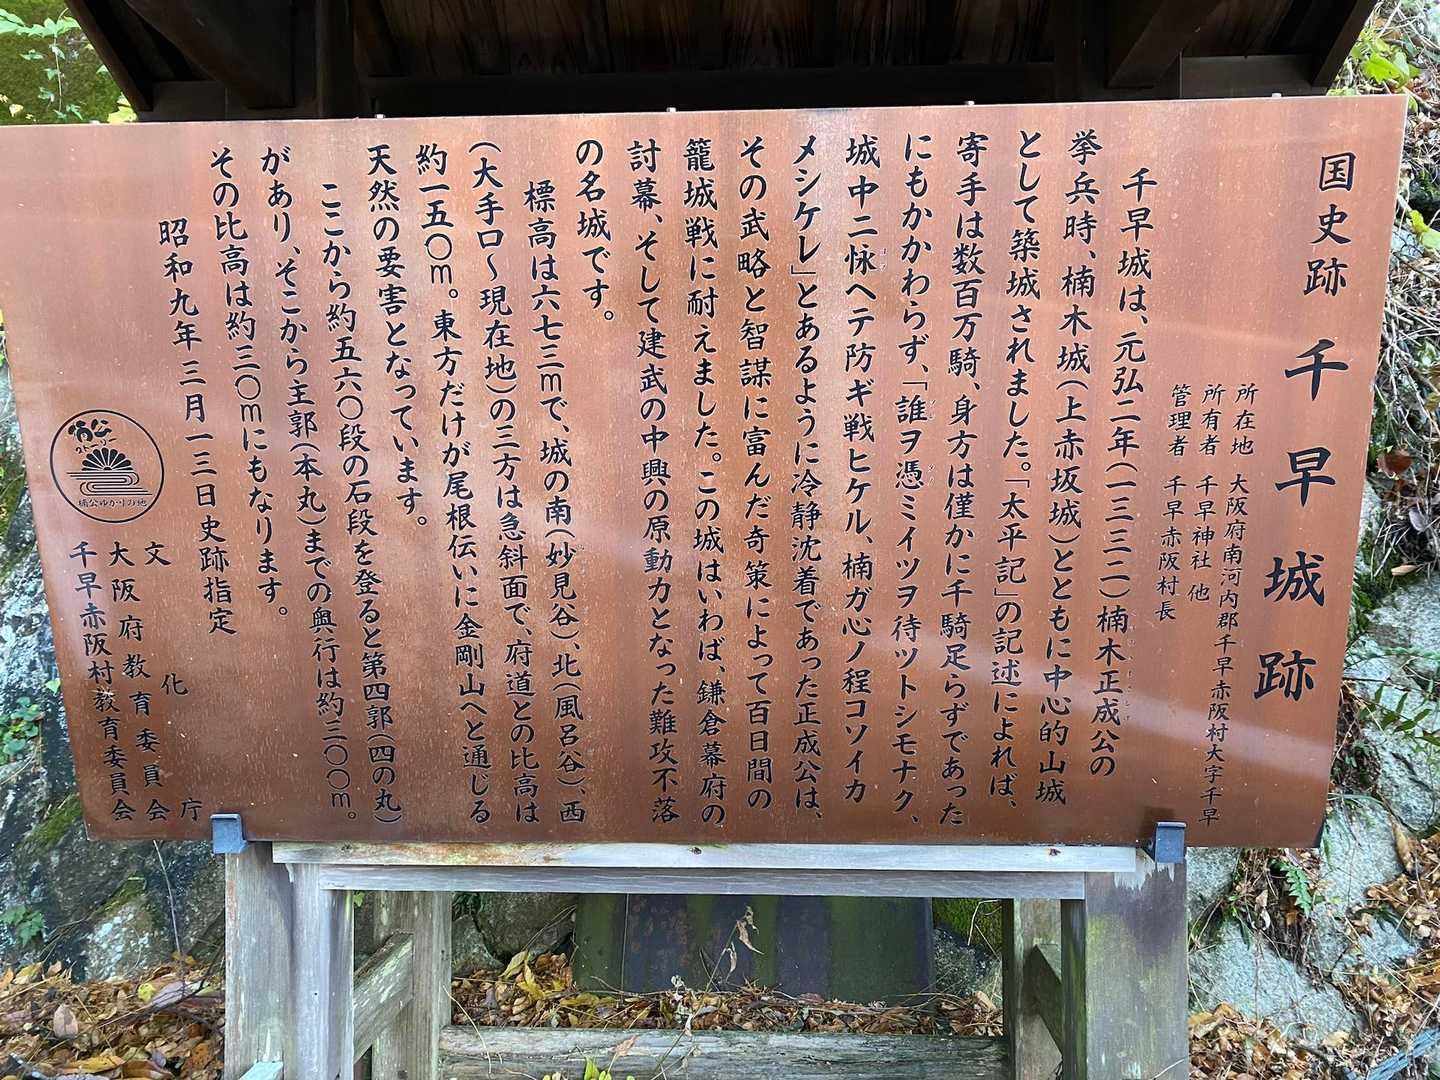 国史跡 千早城跡
所在地 大阪府南河内郡千早赤阪村大字千早
所有者 千早神社 他
管理者 千早赤阪村長
千早城は、元弘二年(一三三二)楠木正成公の
挙兵時、楠木城(上赤坂城)とともに中心的山城
として築城されました。「太平記」の記述によれば、
寄手は数百万騎、身方は僅かに千騎足らずであった
にもかかわらず、「誰ヲ憑ミイツヲ待ツトシモナク、
城中ニ怺ヘテ防ギ戦ヒケル、楠ガ心ノ程コソイカ
メシケレ」とあるように冷静沈着であった正成公は、
その武略と智謀に富んだ奇策によって百日間の
籠城戦に耐えました。この城はいわば、鎌倉幕府の
討幕、そして建武の中興の原動力となった難攻不落
の名城です。
標高は六七三mで、城の南(妙見谷)、北(風呂谷)、西
(大手口~現在地)の三方は急斜面で、府道との比高は
約一五〇m。東方だけが尾根伝いに金剛山へと通じる
天然の要害となっています。
ここから約五六〇段の石段を登ると第四郭(四の丸)
があり、そこから主郭(本丸)までの奥行は約三〇〇m。
その比高は約三〇mにもなります。
昭和九年三月一三日史跡指定
文化庁
大阪府教育委員会
千早赤阪村教育委員会
楠公ゆかりの地